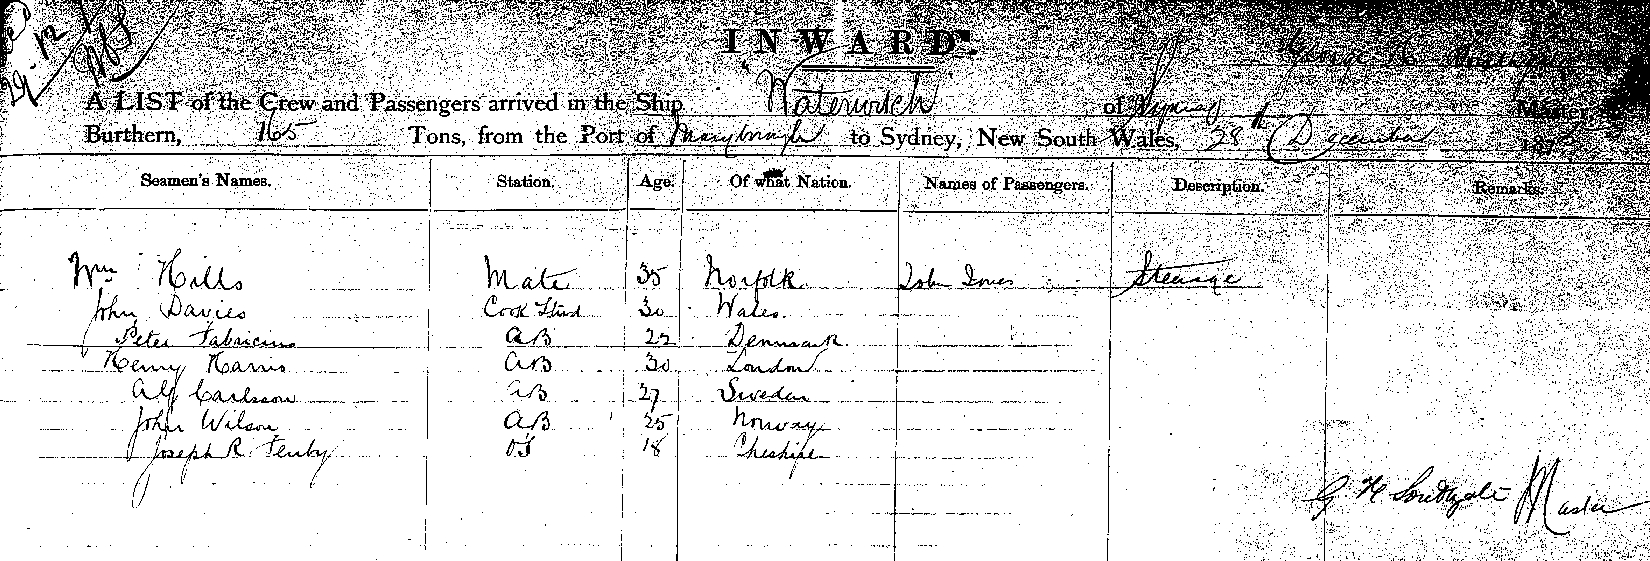 29.12
INWARD.
A LIST of the Crew and Passengers arrived in the Ship Waterwitch of Sydney Master,
Burthern, 165 Tons, from the Port of Maryborough to Sydney, New South Wales, 28th December 187
Seamen's Names. Station. Age. Of what Nation. Names of Passengers. Description. Remarks.
Wm Hills Mate 35 Norfolk John Jones Steerage
John Davies Cook Stwd 30 Wales
Peter Fabricius AB 22 Denmark
Henry Harris AB 30 London
Alf Carlsson AB 27 Sweden
John Wilson AB 25 Norway
Joseph R. Fenby OS 18 Cheshire
G H Southgate Master